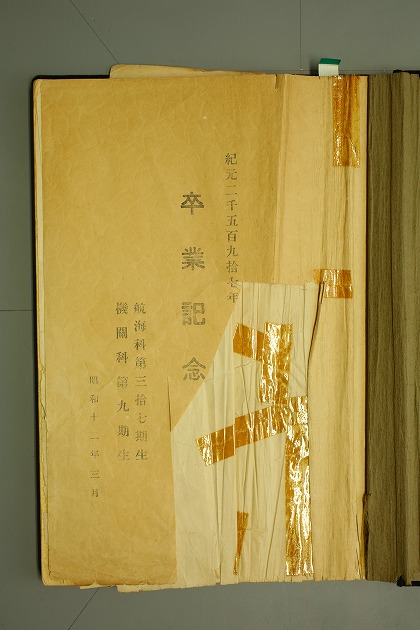 紀元二千五百九拾七年
卒業記念
航海科第三拾七期生
機關科第九期生
昭和十一年三月